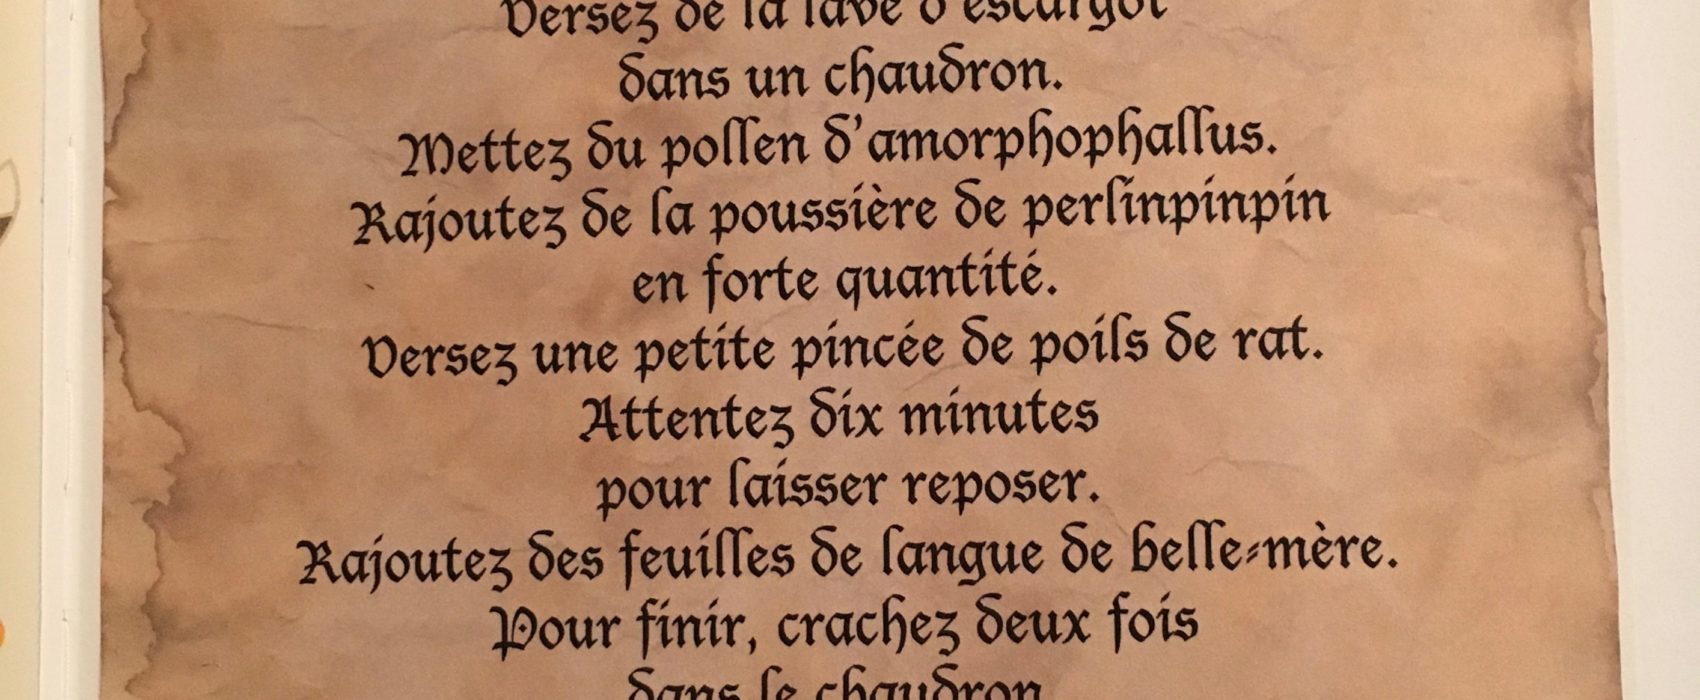 Versez de la lave d'escargot
dans un chaudron.
Mettez du pollen d'amorphophallus.
Rajoutez de la poussière de perlinpinpin
en forte quantité.
Versez une petite pincée de poils de rat.
Attentez dix minutes
pour laisser reposer.
Rajoutez des feuilles de langue de belle-mère.
Pour finir, crachez deux fois
dans le chaudron